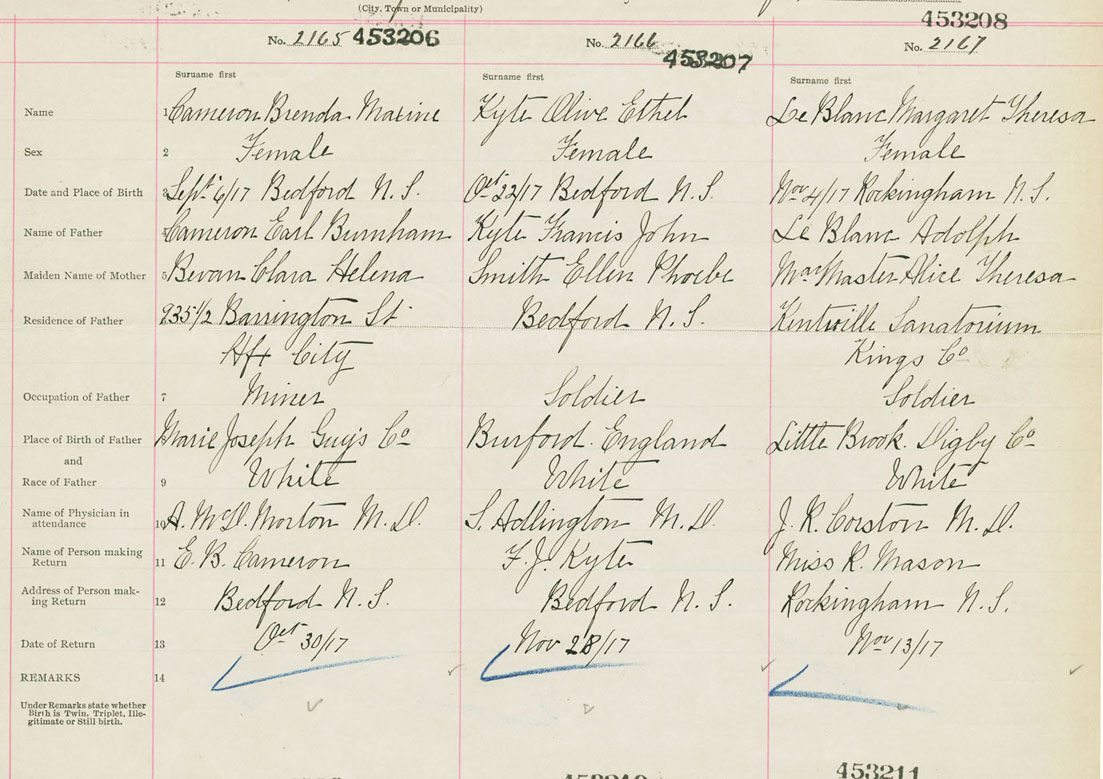 (City, Town or Municipality)
453208
No. 2165 453206 No. 2166 453207 No. 2167
Surname first Surname first Surname first
Name 1 Cameron Brenda Maxine Kyte Olive Ethel Le Blanc Margaret Theresa
Sex 2 Female Female Female
Date and Place of Birth 3 Sept 6/17 Bedford N.S. Oct 22/17 Bedford N.S. Nov 4/17 Rockingham N.S.
Name of Father 4 Cameron Earl Burnham Kyte Francis John Le Blanc Adolph
Maiden Name of Mother 5 Bevan Clara Helena Smith Ellen Phoebe MacMaster Alice Theresa
Residence of Father 235 1/2 Barrington St Bedford N.S. Kentville Sanatorium
Hfx City Kings Co
Occupation of Father 7 Miner Soldier Soldier
Place of Birth of Father Marie Joseph Guys Co Burford England Little Brook Digby Co
and
Race of Father 9 White White White
Name of Physician in
attendance 10 A. McD. Morton M.D. S. Adlington M.D. J. R. Corston M.D.
Name of Person making
Return 11 E. B. Cameron F. J. Kyte Miss R. Mason
Address of Person mak-
ing Return 12 Bedford N.S. Bedford N.S. Rockingham N.S.
Date of Return 13 Oct 30/17 Nov 28/17 Nov 13/17
REMARKS 14
Under Remarks state whether
Birth is Twin, Triplet, Ille-
gitimate or Still birth.
453211